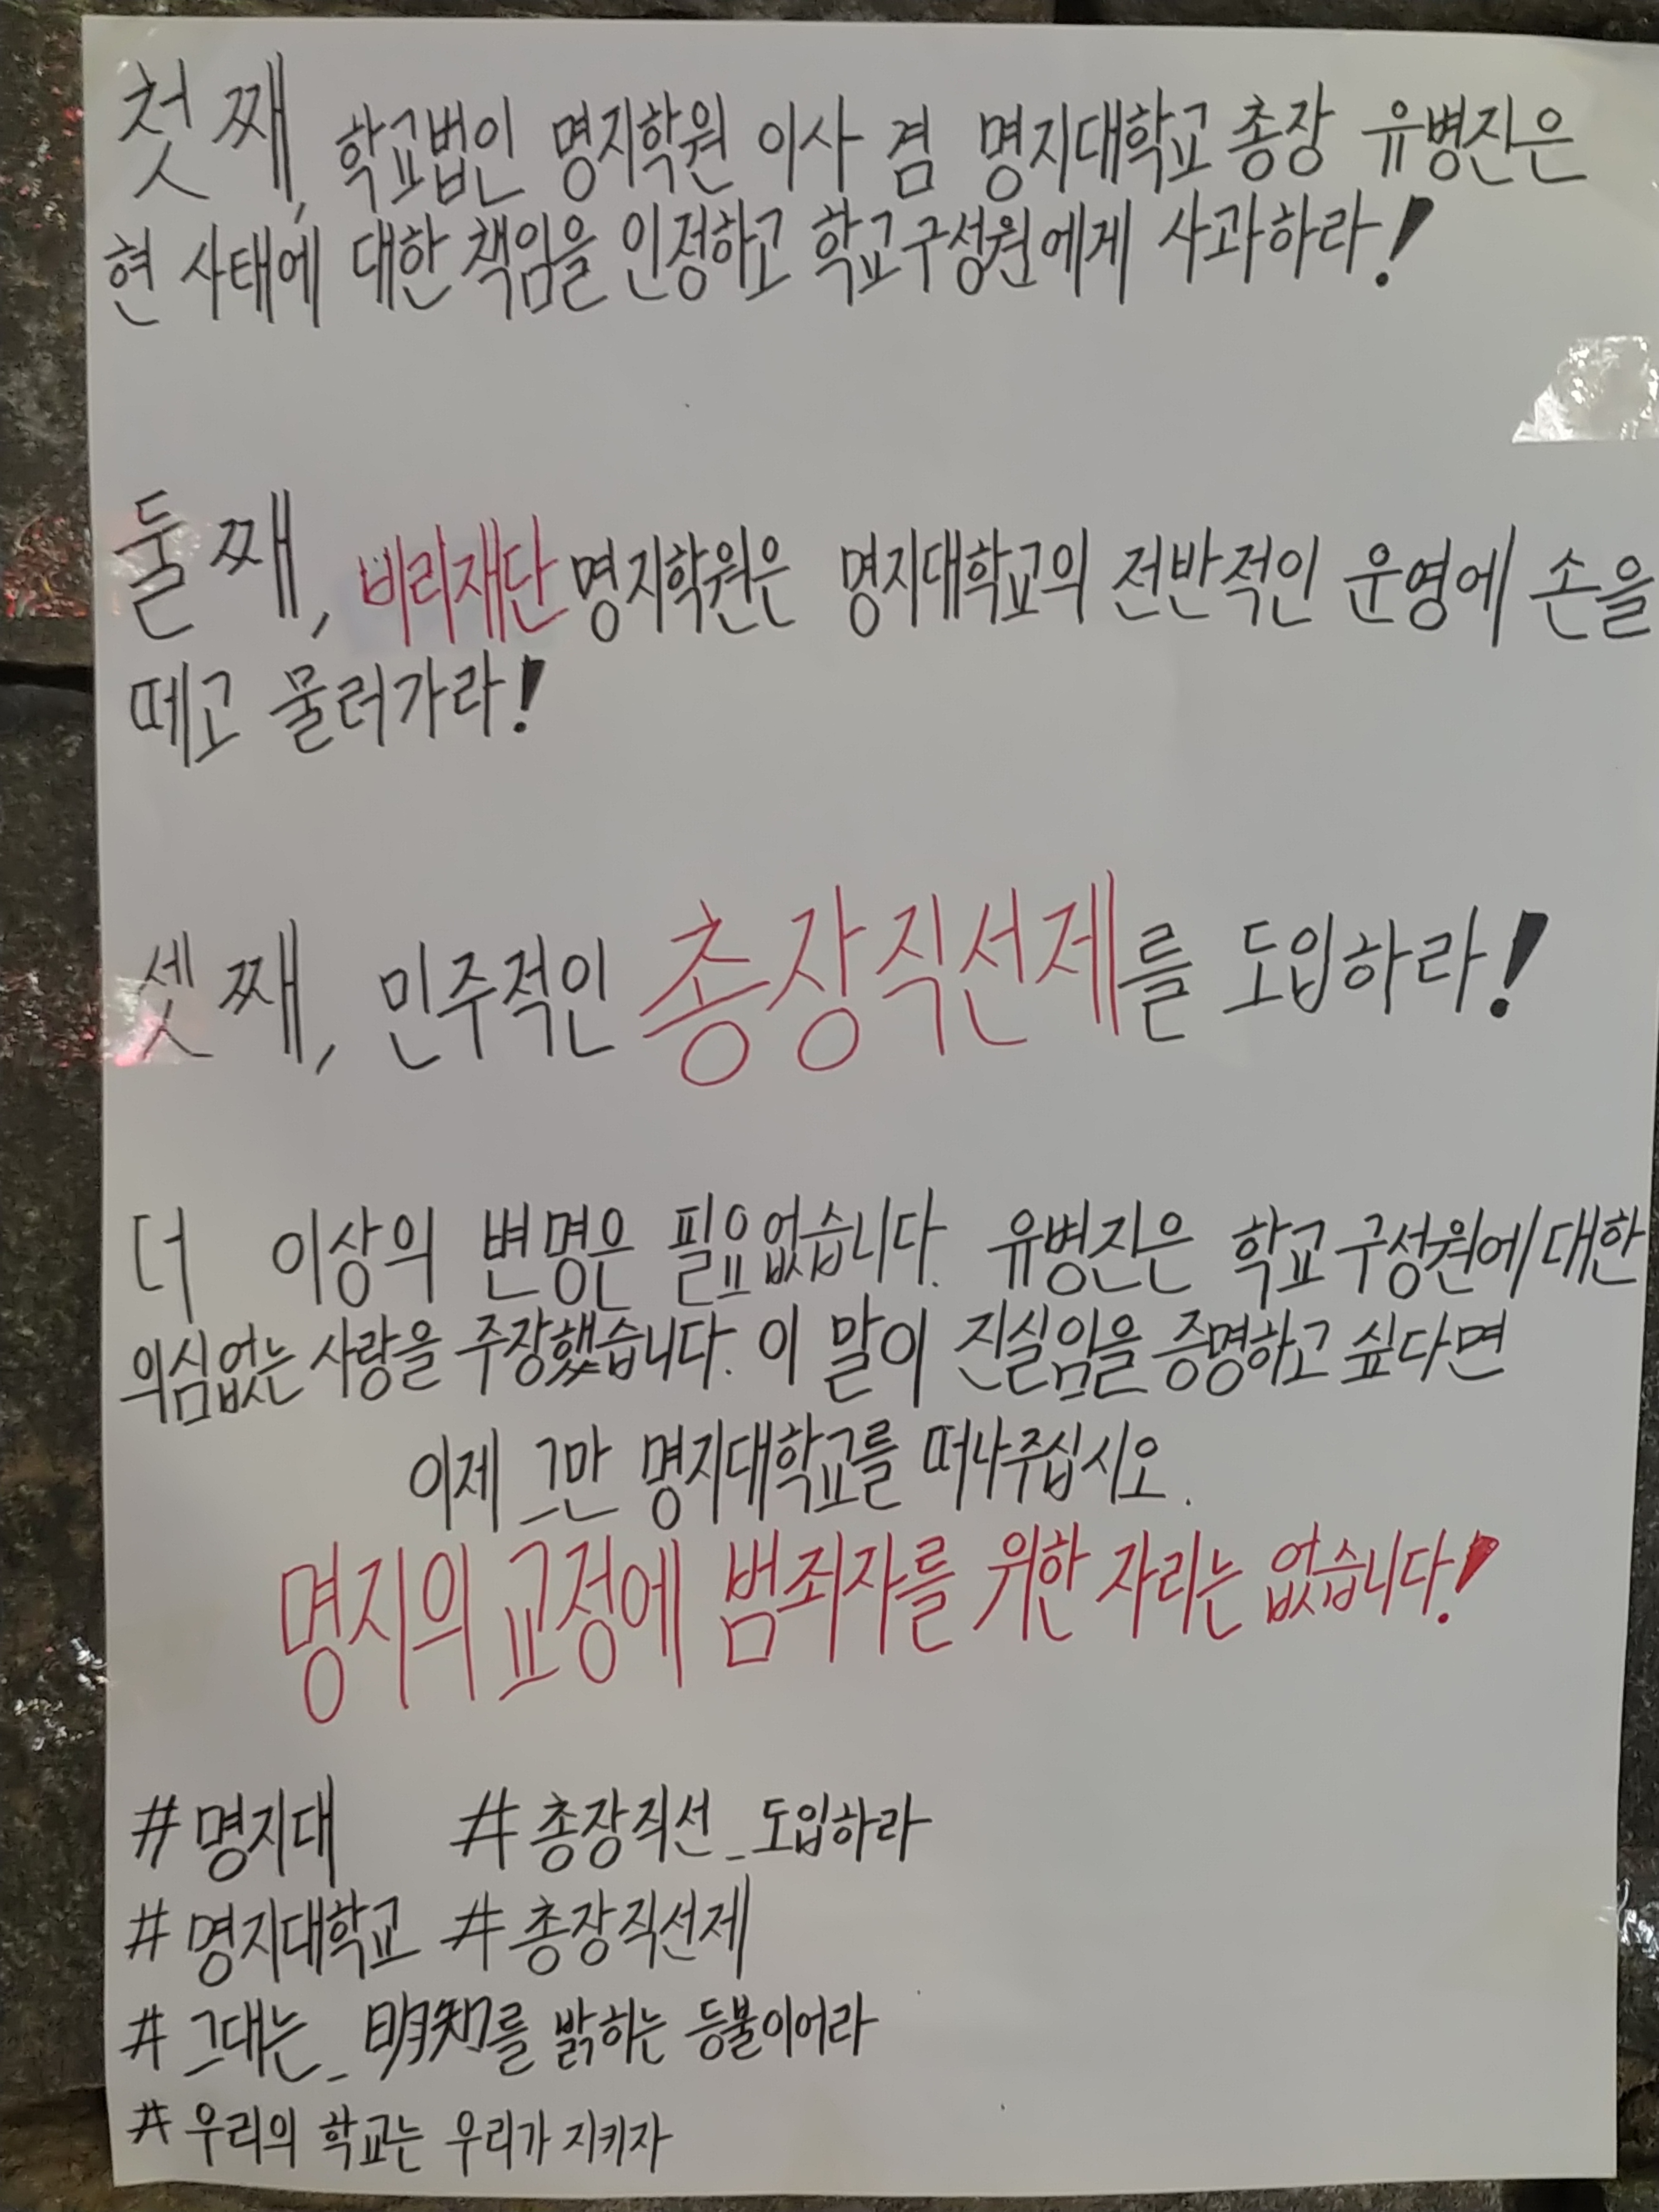 첫째, 학교법인 명지학원 이사 겸 명지대학교 총장 유병진은
현 사태에 대한 책임을 인정하고 학교구성원에게 사과하라!
둘째, 비리재단 명지학원은 명지대학교의 전반적인 운영에 손을
떼고 물러가라!
셋째, 민주적인 총장직선제를 도입하라!
더 이상의 변명은 필요없습니다. 유병진은 학교 구성원에 대한
의심없는 사랑을 주장했습니다. 이 말이 진실임을 증명하고 싶다면
이제 그만 명지대학교를 떠나주십시오.
명지의 교정에 범죄자를 위한 자리는 없습니다!
#명지대 #총장직선_도입하라
#명지대학교 #총장직선제
#그대는_明知를 밝히는 등불이어라
#우리의 학교는 우리가 지키자